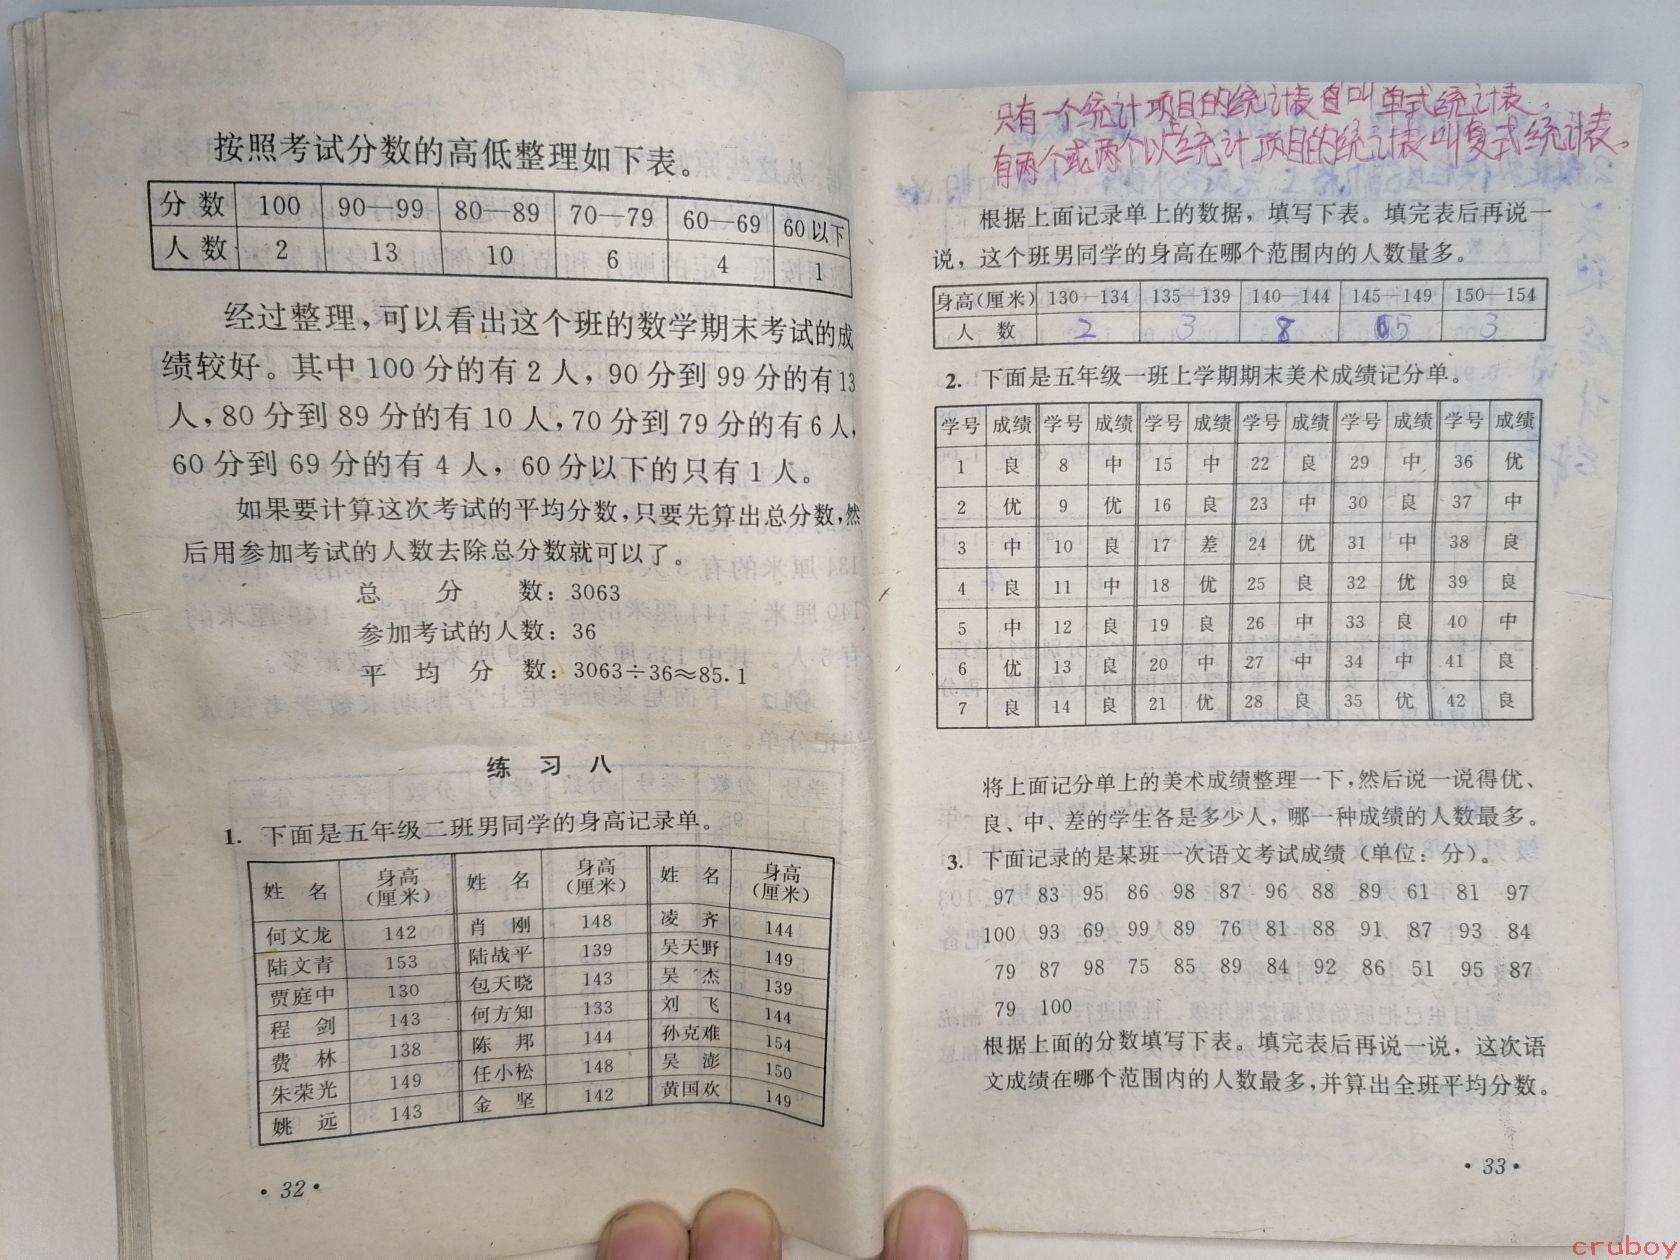 按照考试分数的高低整理如下表。
分数 100 90—99 80—89 70—79 60—69 60以下
人数 2 13 10 6 4 1
经过整理，可以看出这个班的数学期末考试的成
绩较好。其中100分的有2人，90分到99分的有13
人，80分到89分的有10人，70分到79分的有6人，
60分到69分的有4人，60分以下的只有1人。
如果要计算这次考试的平均分数，只要先算出总分数，然
后用参加考试的人数去除总分数就可以了。
总分数：3063
参加考试的人数：36
平均分数：3063÷36≈85.1
练习八
1. 下面是五年级二班男同学的身高记录单。
姓名 身高（厘米） 姓名 身高（厘米） 姓名 身高（厘米）
何文龙 142 肖刚 148 凌齐 144
陆文青 153 陆战平 139 吴天野 149
贾庭中 130 包天晓 143 吴杰 139
程剑 143 何方知 133 刘飞 144
费林 138 陈邦 144 孙克难 154
朱荣光 149 任小松 148 吴澎 150
姚远 143 金坚 142 黄国欢 149
·32·
只有一个统计项目的统计表 叫单式统计表。
有两个或两个以 统计项目的统计表叫复式统计表。
根据上面记录单上的数据，填写下表。填完表后再说一
说，这个班男同学的身高在哪个范围内的人数量多。
身高（厘米） 130—134 135—139 140—144 145—149 150—154
人数 2 3 8 5 3
2. 下面是五年级一班上学期期末美术成绩记分单。
学号 成绩 学号 成绩 学号 成绩 学号 成绩 学号 成绩 学号 成绩
1 良 8 中 15 中 22 良 29 中 36 优
2 优 9 优 16 良 23 中 30 良 37 中
3 中 10 良 17 差 24 优 31 中 38 良
4 良 11 中 18 优 25 良 32 优 39 良
5 中 12 良 19 良 26 中 33 良 40 中
6 优 13 良 20 中 27 中 34 中 41 良
7 良 14 良 21 优 28 良 35 优 42 良
将上面记分单上的美术成绩整理一下，然后说一说得优、
良、中、差的学生各是多少人，哪一种成绩的人数最多。
3. 下面记录的是某班一次语文考试成绩（单位：分）。
97 83 95 86 98 87 96 88 89 61 81 97
100 93 69 99 89 76 81 88 91 87 93 84
79 87 98 75 85 89 84 92 86 51 95 87
79 100
根据上面的分数填写下表。填完表后再说一说，这次语
文成绩在哪个范围内的人数最多，并算出全班平均分数。
·33·
cruboy